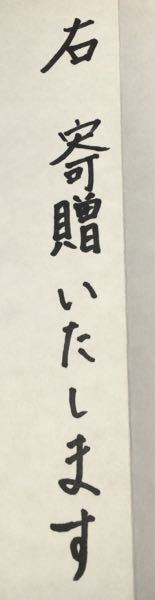 右 寄贈いたします